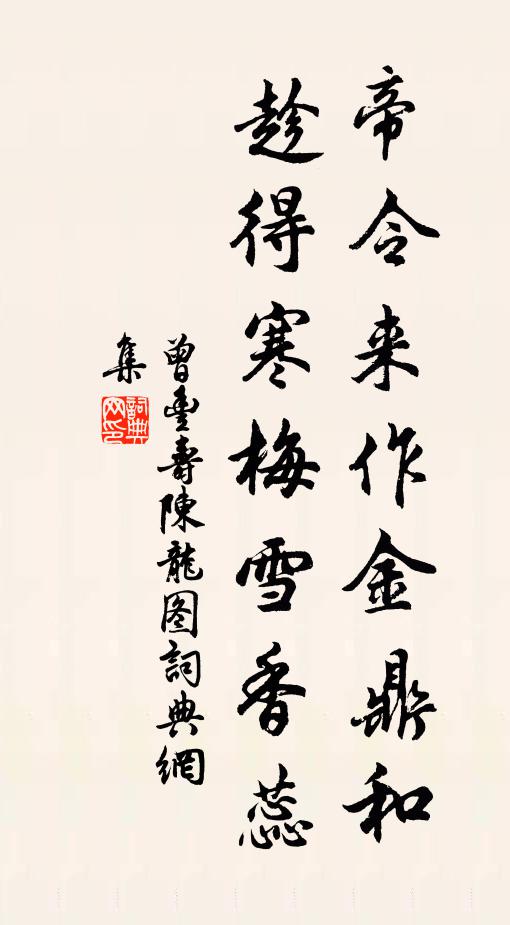 帝令来作金鼎和
趁得寒梅雪香蕊
曾豐壽陳龍图詞典網
集
詞典
网印